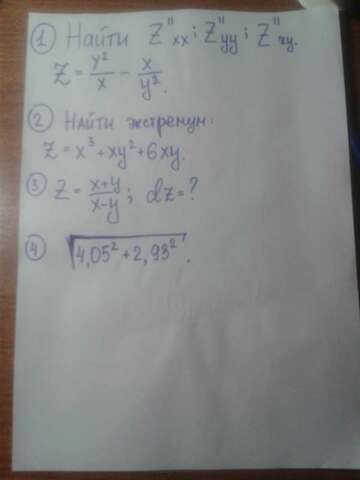 ① Найти Z''xx; Z''yy; Z''xy.
Z = y²/x − x/y².
② Найти экстремум:
Z = x³ + xy² + 6xy.
③ Z = (x+y)/(x−y); dz = ?
④ √(4,05² + 2,93²).